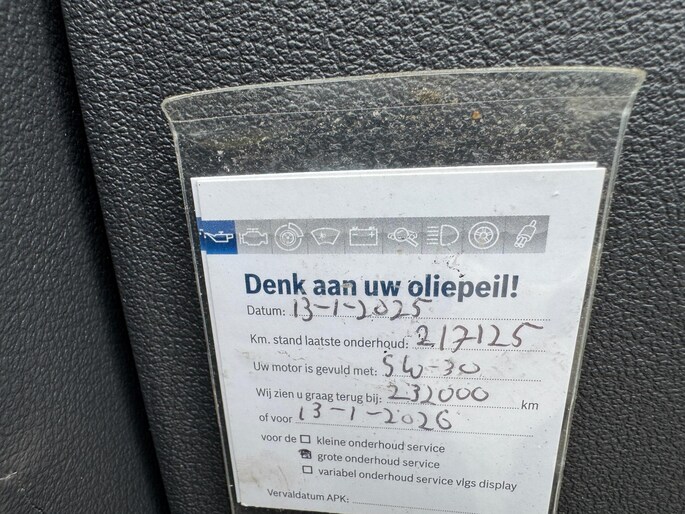 Denk aan uw oliepeil!
Datum: 13-1-2025
Km. stand laatste onderhoud: 217125
Uw motor is gevuld met: 5W-30
Wij zien u graag terug bij: 232000 km
of voor 13-1-2026
voor de ☐ kleine onderhoud service
☒ grote onderhoud service
☐ variabel onderhoud service vlgs display
Vervaldatum APK: